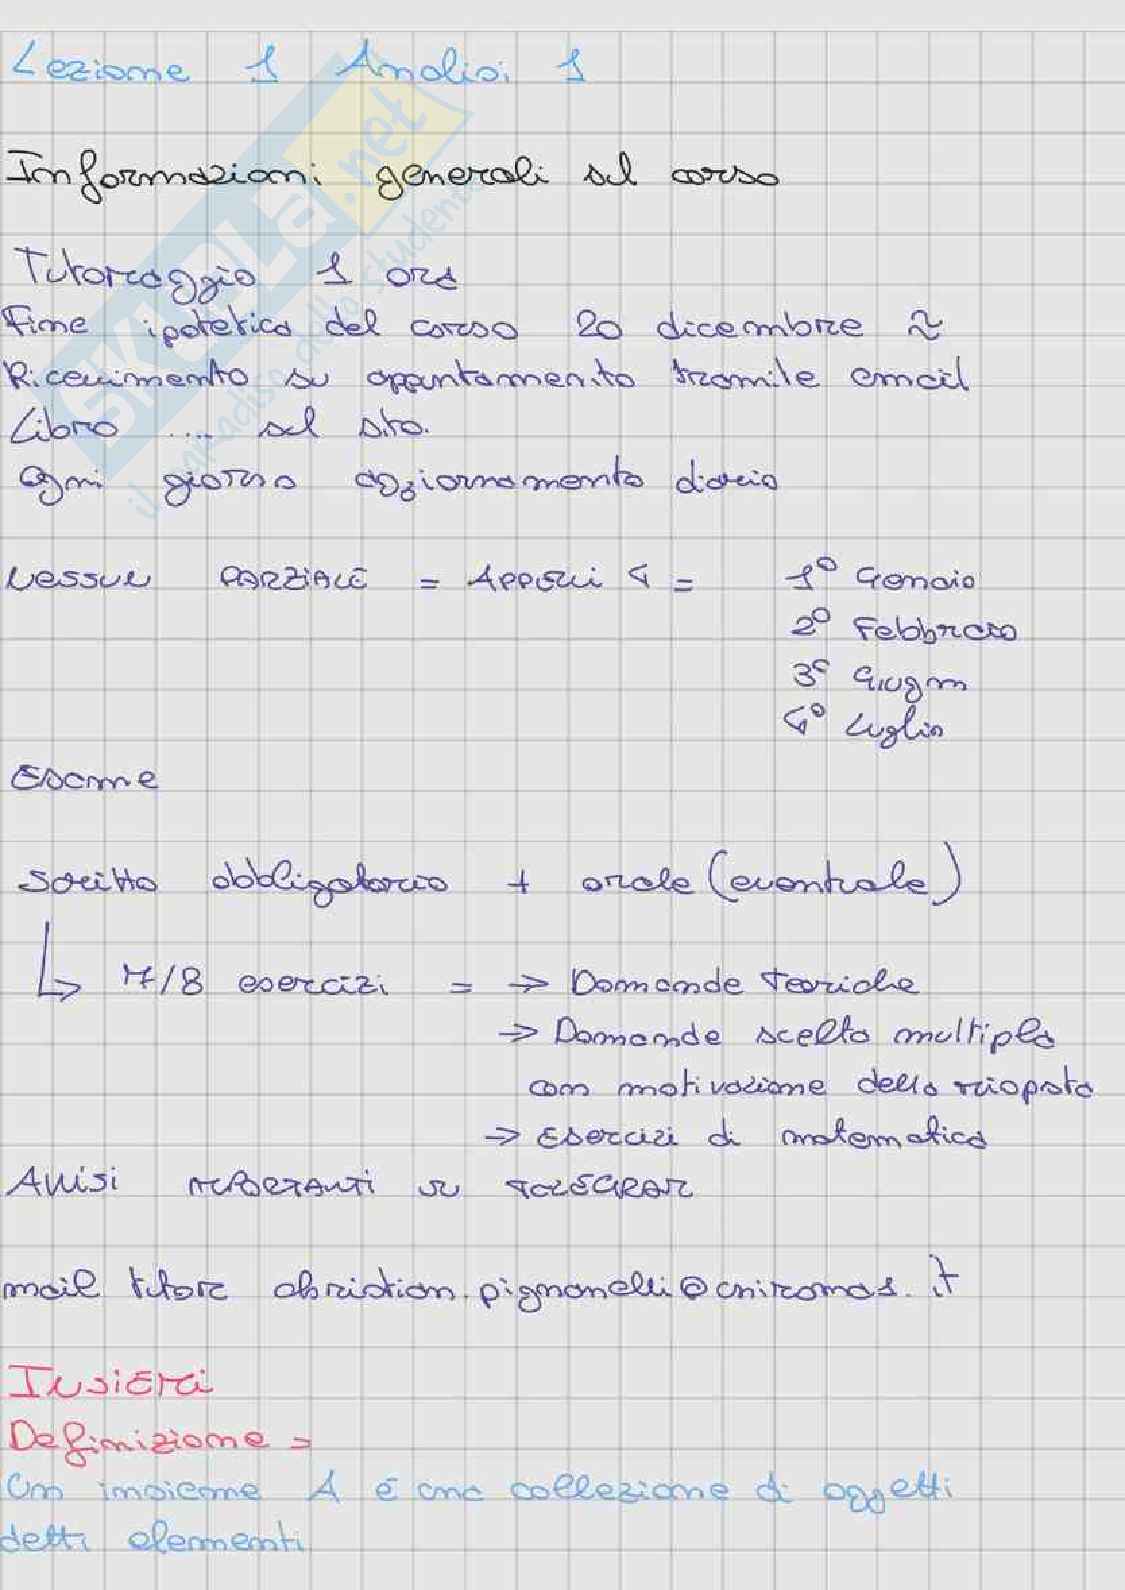 Lezione 1 Analisi 1
Informazioni generali sul corso
Tutoraggio 1 ora
Fine ipotetica del corso 20 dicembre ≈
Ricevimento su appuntamento tramite email
Libro .... sul sito.
Ogni giorno aggiornamento diario
Nessun PARZIALE = APPELLI 4 = 1° Gennaio
2° Febbraio
3° Giugno
4° Luglio
Esame
Scritto obbligatorio + orale (eventuale)
↳ 7/8 esercizi = → Domande teoriche
→ Domande scelta multipla
con motivazione della risposta
→ Esercizi di matematica
AVVISI IMPORTANTI SU TELEGRAM
mail tutor christian.pignanelli@uniroma3.it
INSIEMI
Definizione =
Un insieme A è una collezione di oggetti
detti elementi
SKUOLA.net
il paradiso dello studente